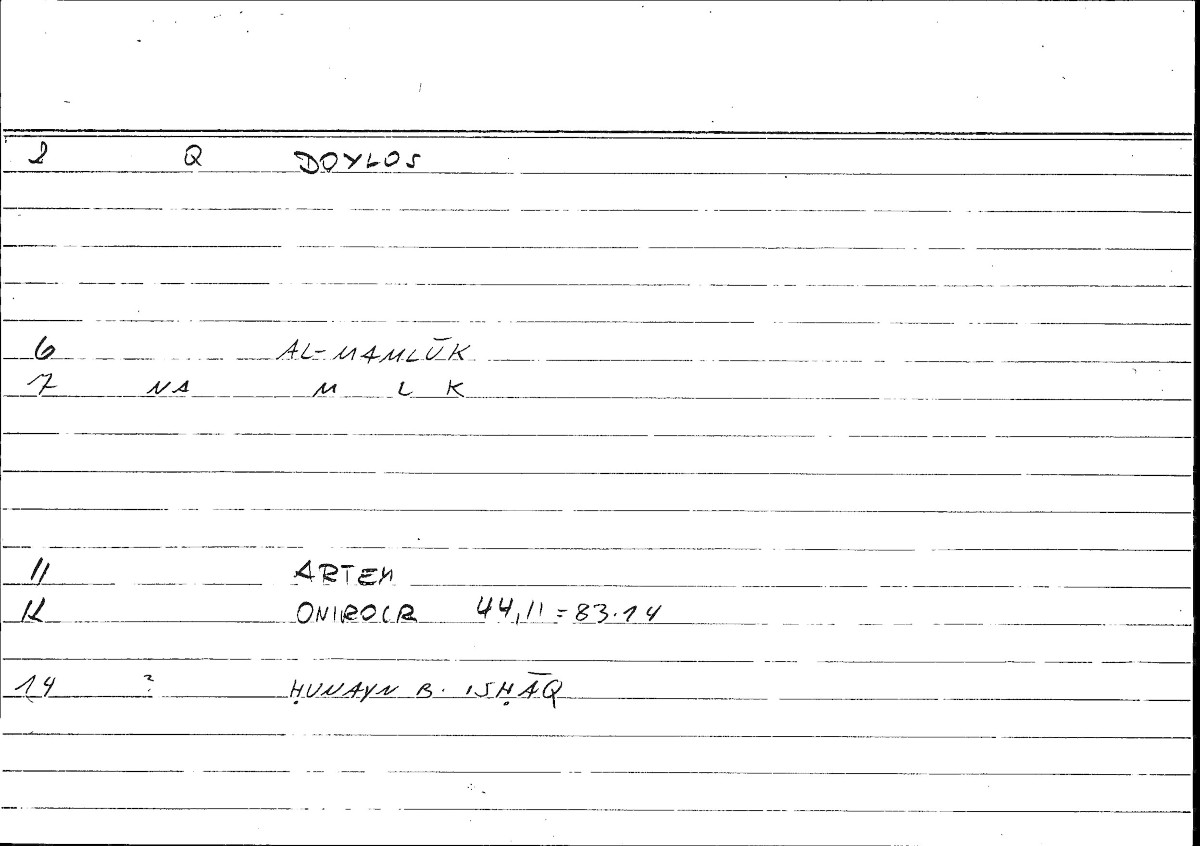 2 Q DOYLOS
6 AL-MAMLŪK
7 NA M L K
11 ARTEM
12 ONIROCR 44,11=83.14
14 ? ḤUNAYN B. ISḤĀQ